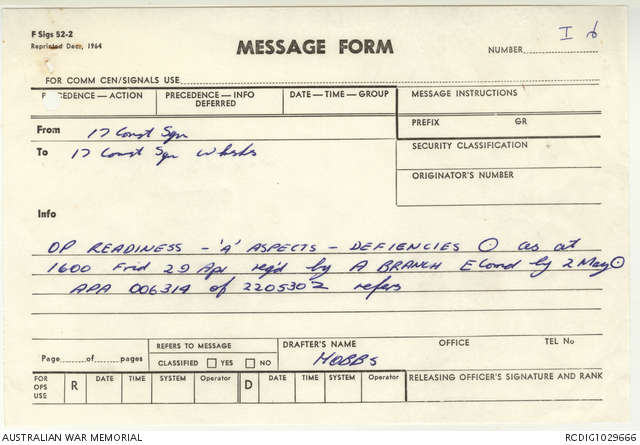 F Sigs 52-2
Reprinted Dec., 1964
MESSAGE FORM
NUMBER
I
FOR COMM CEN/SIGNALS USE
P CEDENCE — ACTION
PRECEDENCE — INFO
DEFERRED
DATE — TIME — GROUP
MESSAGE INSTRUCTIONS
PREFIX GR
From 17 Const Sqn
To 17 Const Sqn Wksps
SECURITY CLASSIFICATION
ORIGINATOR'S NUMBER
Info
OP READINESS - 'A' ASPECTS - DEFIENCIES O as at
1600 Frid 29 Apl req'd by A BRANCH E Comd by 2 May O
APA 006314 of 220530Z refers
Page of pages
REFERS TO MESSAGE
CLASSIFIED YES NO
DRAFTER'S NAME OFFICE TEL No
HOBBS
FOR OPS USE R DATE TIME SYSTEM Operator D DATE TIME SYSTEM Operator RELEASING OFFICER'S SIGNATURE AND RANK
AUSTRALIAN WAR MEMORIAL RCDIG1029666